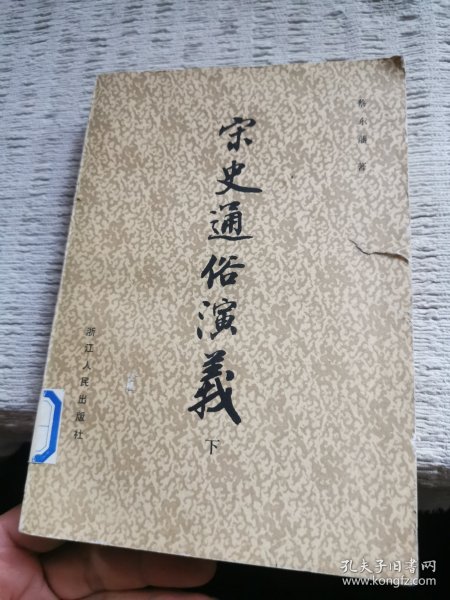 蔡东藩 著
宋史通俗演義
下
浙江人民出版社
孔夫子旧书网
www.kongfz.com